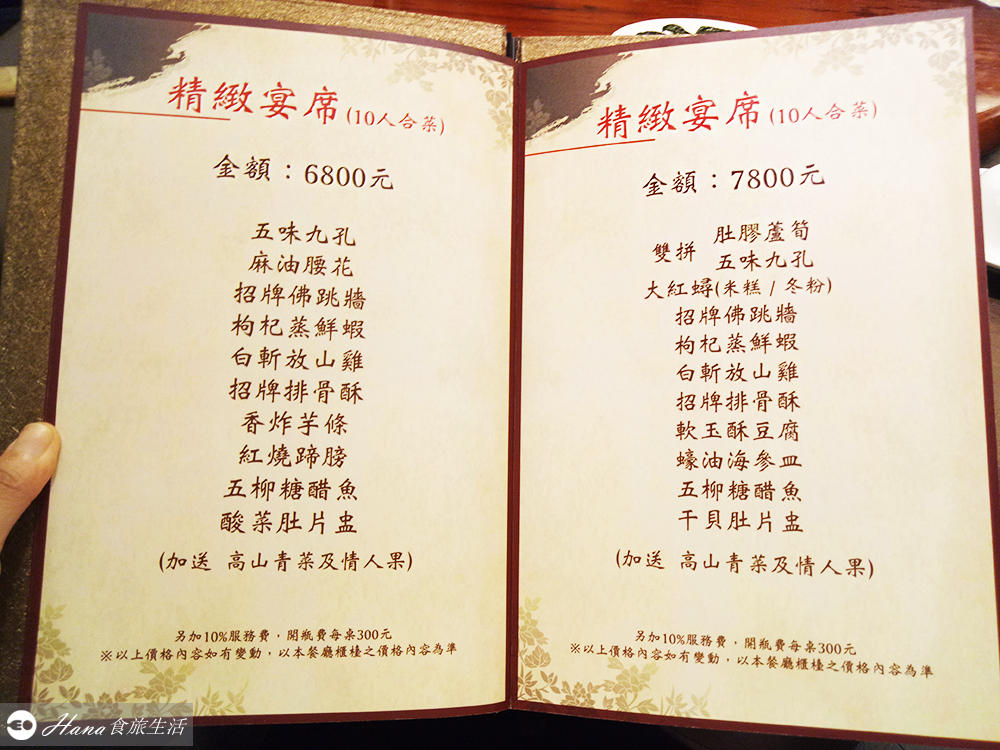 精緻宴席(10人合菜)
金額：6800元
五味九孔
麻油腰花
招牌佛跳牆
枸杞蒸鮮蝦
白斬放山雞
招牌排骨酥
香炸芋條
紅燒蹄膀
五柳糖醋魚
酸菜肚片盅
(加送 高山青菜及情人果)
另加10%服務費，開瓶費每桌300元
※以上價格內容如有變動，以本餐廳櫃檯之價格內容為準
精緻宴席(10人合菜)
金額：7800元
雙拼 肚膠蘆筍
五味九孔
大紅蟳(米糕 / 冬粉)
招牌佛跳牆
枸杞蒸鮮蝦
白斬放山雞
招牌排骨酥
軟玉酥豆腐
蠔油海參皿
五柳糖醋魚
干貝肚片盅
(加送 高山青菜及情人果)
另加10%服務費，開瓶費每桌300元
※以上價格內容如有變動，以本餐廳櫃檯之價格內容為準
Hana 食旅生活